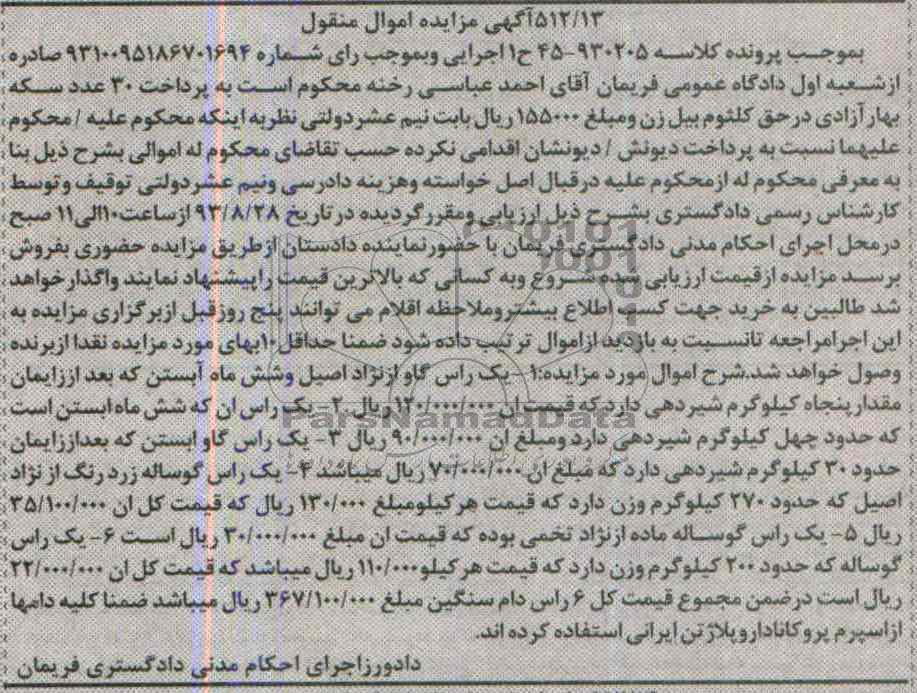 ۵۱۲/۱۳آگهی مزایده اموال منقول
بموجب پرونده کلاسه ۹۳۰۲۰۵-۴۵ ح۱ اجرایی وبموجب رای شماره ۹۳۱۰۰۹۵۱۸۶۷۰۱۶۹۴ صادره
ازشعبه اول دادگاه عمومی فریمان آقای احمد عباسی رخنه محکوم است به پرداخت ۳۰ عدد سکه
بهار آزادی درحق کلثوم بیل زن ومبلغ ۱۵۵۰۰۰ ریال بابت نیم عشردولتی نظربه اینکه محکوم علیه / محکوم
علیهما نسبت به پرداخت دیونش / دیونشان اقدامی نکرده حسب تقاضای محکوم له اموالی بشرح ذیل بنا
به معرفی محکوم له ازمحکوم علیه درقبال اصل خواسته وهزینه دادرسی ونیم عشردولتی توقیف وتوسط
کارشناس رسمی دادگستری بشرح ذیل ارزیابی ومقررگردیده درتاریخ ۹۳/۸/۲۸ ازساعت۱۰الی۱۱ صبح
درمحل اجرای احکام مدنی دادگستری فریمان با حضورنماینده دادستان ازطریق مزایده حضوری بفروش
برسد مزایده ازقیمت ارزیابی شده شروع وبه کسانی که بالاترین قیمت راپیشنهاد نمایند واگذارخواهد
شد طالبین به خرید جهت کسب اطلاع بیشتروملاحظه اقلام می توانند پنج روزقبل ازبرگزاری مزایده به
این اجرامراجعه تانسبت به بازدید ازاموال ترتیب داده شود ضمنا حداقل۱۰بهای مورد مزایده نقدا ازبرنده
وصول خواهد شد.شرح اموال مورد مزایده:۱-یک راس گاو ازنژاد اصیل وشش ماه آبستن که بعد اززایمان
مقدارپنجاه کیلوگرم شیردهی داردکه قیمت ان ۱۲۰/۰۰۰/۰۰۰ریال ۲- یک راس ان که شش ماه ابستن است
که حدود چهل کیلوگرم شیردهی دارد ومبلغ ان ۹۰/۰۰۰/۰۰۰ ریال ۳- یک راس گاو ابستن که بعداززایمان
حدود ۳۰ کیلوگرم شیردهی دارد که مبلغ ان ۷۰/۰۰۰/۰۰۰ ریال میباشد ۴- یک راس گوساله زرد رنگ از نژاد
اصیل که حدود ۲۷۰ کیلوگرم وزن دارد که قیمت هرکیلومبلغ ۱۳۰/۰۰۰ ریال که قیمت کل ان ۳۵/۱۰۰/۰۰۰
ریال ۵- یک راس گوساله ماده ازنژاد تخمی بوده که قیمت ان مبلغ ۳۰/۰۰۰/۰۰۰ ریال است ۶- یک راس
گوساله که حدود ۲۰۰ کیلوگرم وزن دارد که قیمت هرکیلو۱۱۰/۰۰۰ ریال میباشد که قیمت کل ان ۲۲/۰۰۰/۰۰۰
ریال است درضمن مجموع قیمت کل ۶ راس دام سنگین مبلغ ۳۶۷/۱۰۰/۰۰۰ ریال میباشد ضمنا کلیه دامها
ازاسپرم پروکاناداروپلاژتن ایرانی استفاده کرده اند.
دادورزاجرای احکام مدنی دادگستری فریمان
ParsNamadData